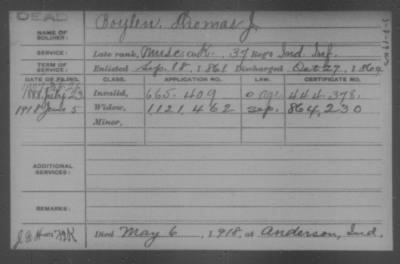 DEAD
NAME OF SOLDIER: Boylen, Thomas J.
SERVICE: Late rank, Musc. Co. K. 37 Reg't Ind. Inf.
TERM OF SERVICE: Enlisted Sep. 18, 1861 Discharged Oct 27, 1864
DATE OF FILING. CLASS. APPLICATION NO. LAW. CERTIFICATE NO.
1888 July 23 Invalid, 665.409 444.378.
1918 June 5 Widow, 1121,462 Sep. 864,230
Minor,
ADDITIONAL SERVICES:
REMARKS:
Died May 6, 1918, at Anderson, Ind.